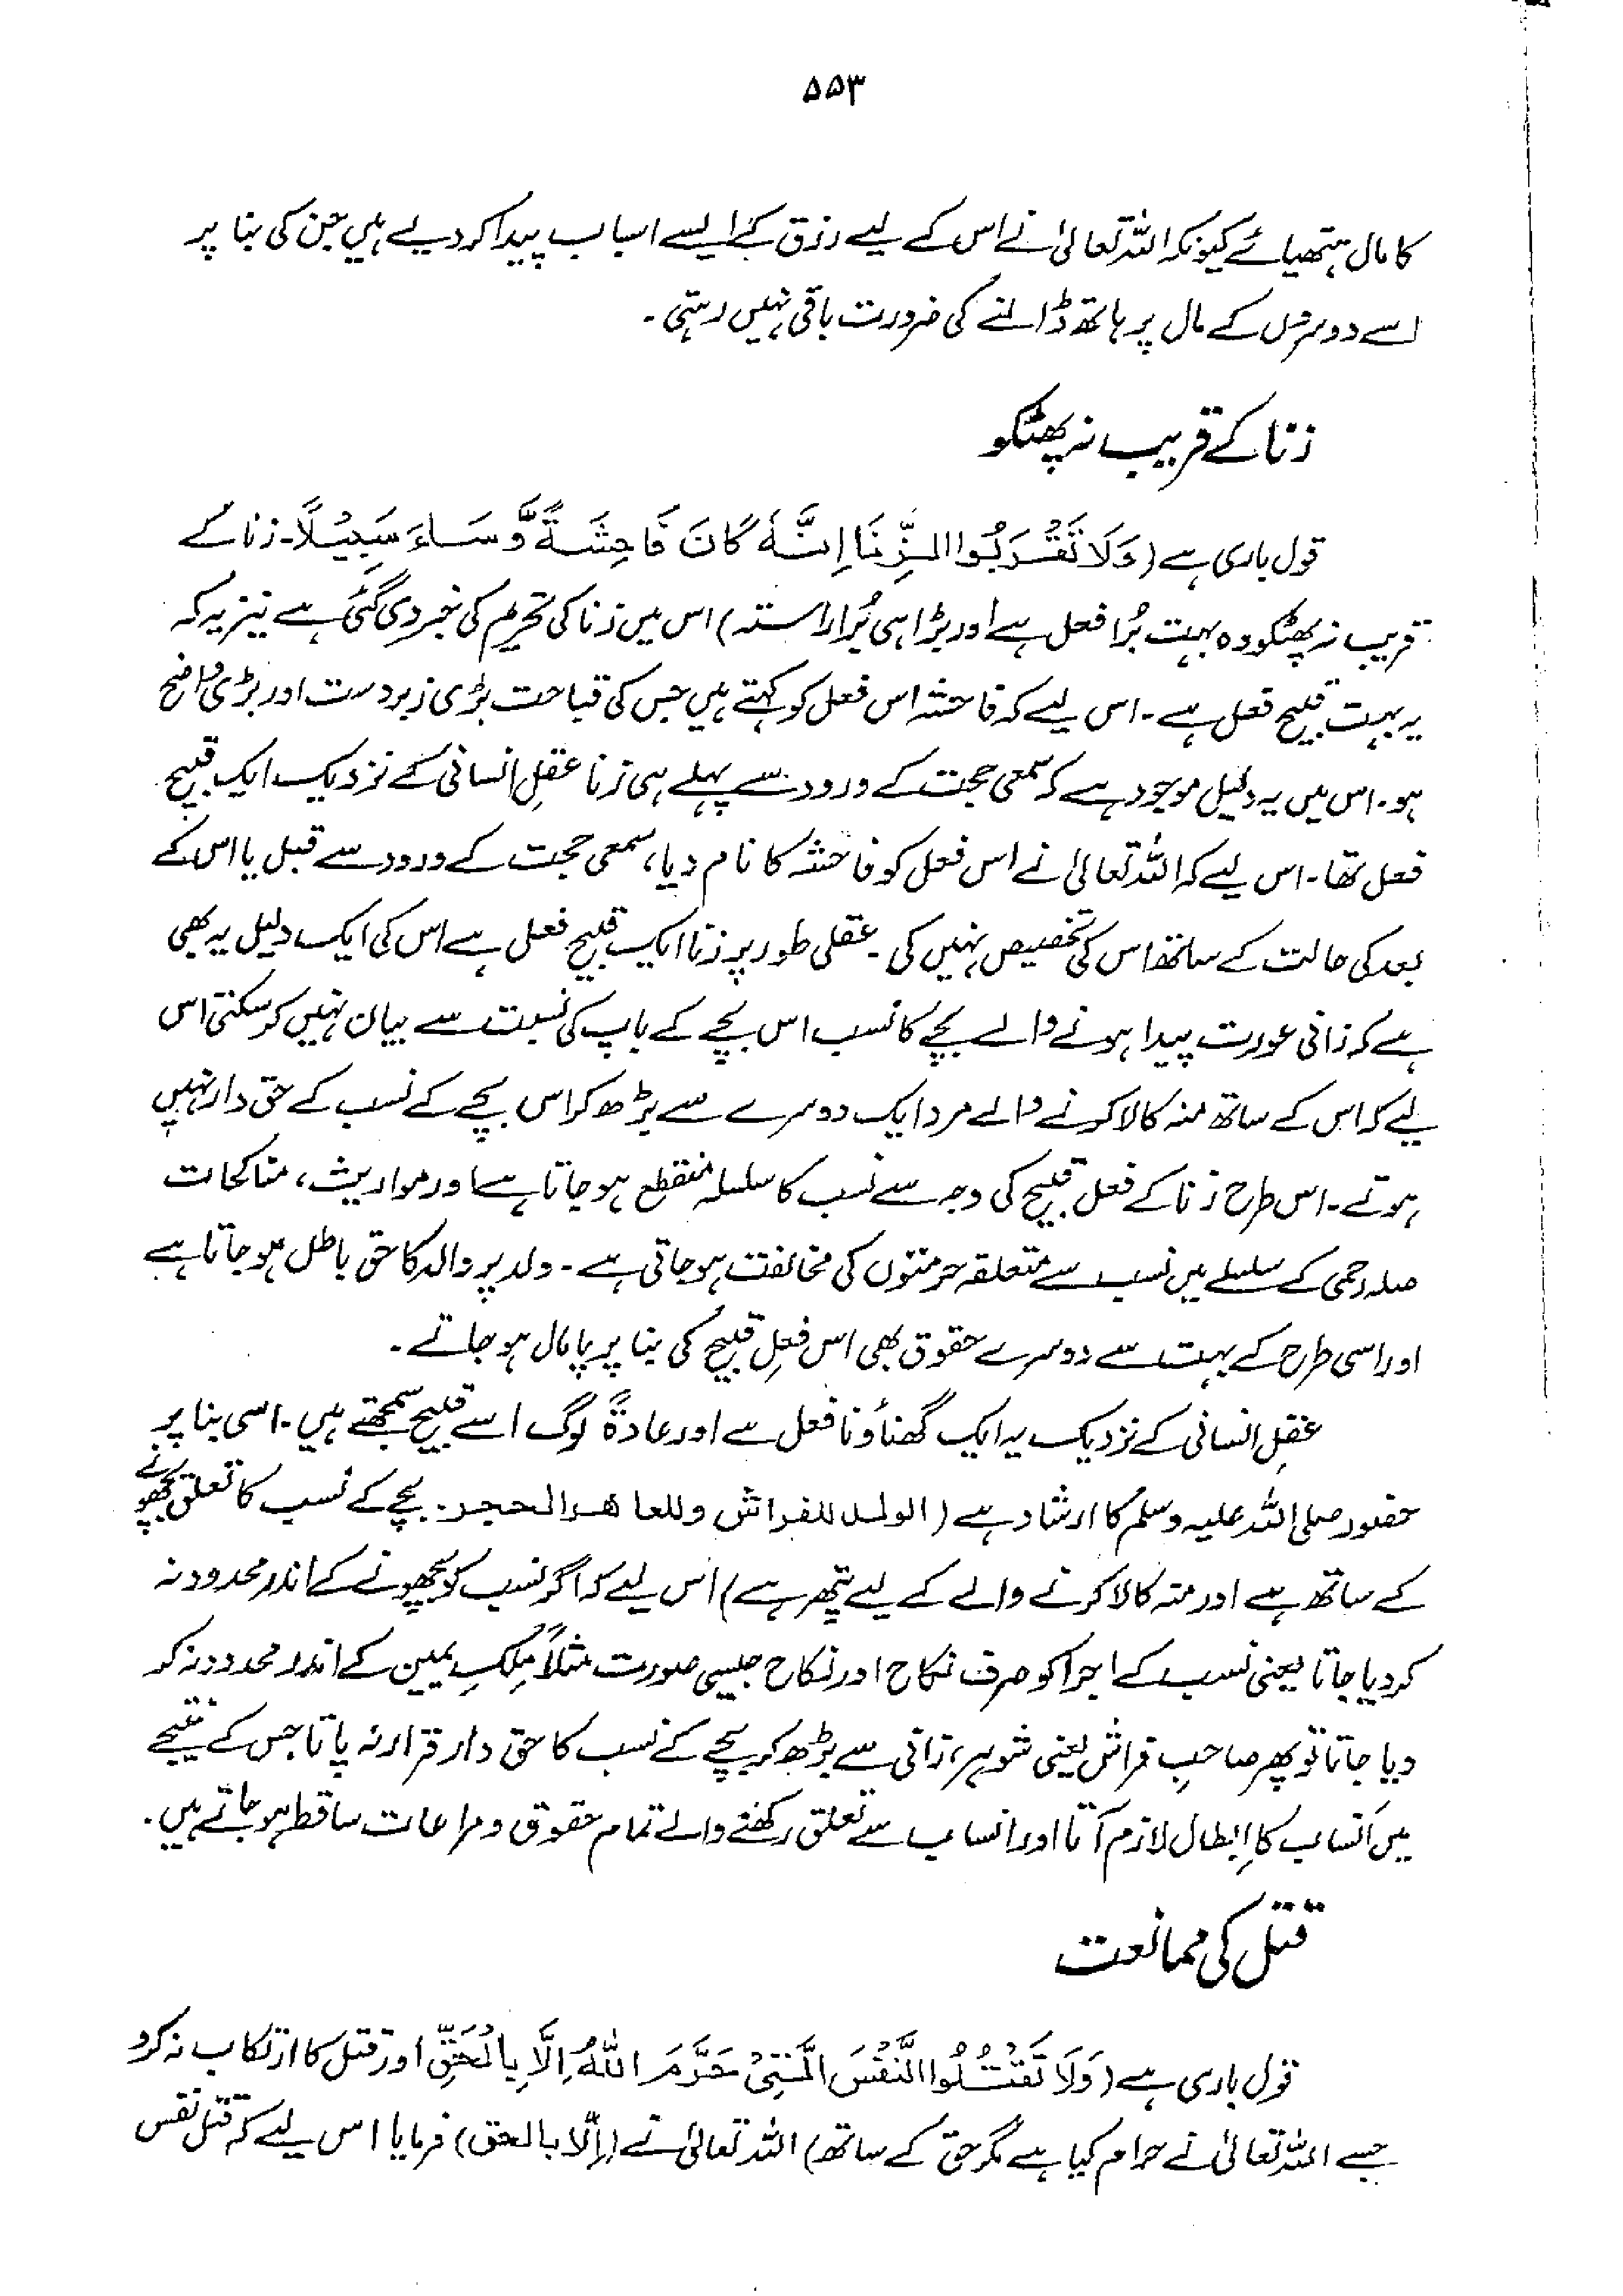 ۵۵۳
کا مال ہتھیائے کیونکہ اللہ تعالیٰ نے اس کے لیے رزق کے ایسے اسباب پیدا کر دیے ہیں جن کی بنا پر
اسے دوسروں کے مال پر ہاتھ ڈالنے کی ضرورت باقی نہیں رہتی۔
زنا کے قریب نہ پھٹکو
قول باری ہے (وَلَا تَقْرَبُوا الزِّنَا اِنَّهٗ كَانَ فَاحِشَةً وَّسَاءَ سَبِيْلًا۔ زنا کے
قریب نہ پھٹکو وہ بہت بُرا فعل ہے اور بڑا ہی بُرا راستہ) اس میں زنا کی تحریم کی خبر دی گئی ہے نیز یہ کہ
یہ بہت قبیح فعل ہے۔ اس لیے کہ فاحشہ اس فعل کو کہتے ہیں جس کی قباحت بڑی زبردست اور بڑی واضح
ہو۔ اس میں یہ دلیل موجود ہے کہ سمعی حجت کے ورود سے پہلے ہی زنا عقلِ انسانی کے نزدیک ایک قبیح
فعل تھا۔ اس لیے کہ اللہ تعالیٰ نے اس فعل کو فاحشہ کا نام دیا، سمعی حجت کے ورود سے قبل یا اس کے
بعد کی حالت کے ساتھ اس کی تخصیص نہیں کی۔ عقلی طور پر زنا ایک قبیح فعل ہے اس کی ایک دلیل یہ بھی
ہے کہ زانی عورت پیدا ہونے والے بچے کا نسب اس بچے کے باپ کی نسبت سے بیان نہیں کر سکتی اس
لیے کہ اس کے ساتھ منہ کالا کرنے والے مرد ایک دوسرے سے بڑھ کر اس بچے کے نسب کے حق دار نہیں
ہوتے۔ اس طرح زنا کے فعل قبیح کی وجہ سے نسب کا سلسلہ منقطع ہو جاتا ہے اور مواریث، مناکحات
صلہ رحمی کے سلسلے میں نسب سے متعلقہ حرمتوں کی مخالفت ہو جاتی ہے۔ ولد پر والد کا حق باطل ہو جاتا ہے
اور اسی طرح کے بہت سے دوسرے حقوق بھی اس فعلِ قبیح کی بنا پر پامال ہو جاتے۔
عقلِ انسانی کے نزدیک یہ ایک گھناؤنا فعل سے اور عادۃً لوگ اسے قبیح سمجھتے ہیں۔ اسی بنا پر
حضور صلی اللہ علیہ وسلم کا ارشاد ہے (الولد للفراش وللعاهر الحجر۔ بچے کے نسب کا تعلق بچھونے
کے ساتھ ہے اور منہ کالا کرنے والے کے لیے پتھر ہے) اس لیے کہ اگر نسب کو بچھونے کے اندر محدود نہ
کر دیا جاتا یعنی نسب کے اجرا کو صرف نکاح اور نکاح جیسی صورت مثلاً مِلکِ یمین کے اندر محدود نہ کر
دیا جاتا تو پھر صاحبِ فراش یعنی شوہر، زانی سے بڑھ کر بچے کے نسب کا حق دار قرار نہ پاتا جس کے نتیجے
میں اَنساب کا اِبطال لازم آتا اور انساب سے تعلق رکھنے والے تمام حقوق و مراعات ساقط ہو جاتے ہیں۔
قتل کی ممانعت
قول باری ہے (وَلَا تَقْتُلُوا النَّفْسَ الَّتِیْ حَرَّمَ اللّٰهُ اِلَّا بِالْحَقِّ اور قتل کا ارتکاب نہ کرو
جسے اللہ تعالیٰ نے حرام کیا ہے مگر حق کے ساتھ) اللہ تعالیٰ نے (اِلّا بالحق) فرمایا اس لیے کہ قتل نفس